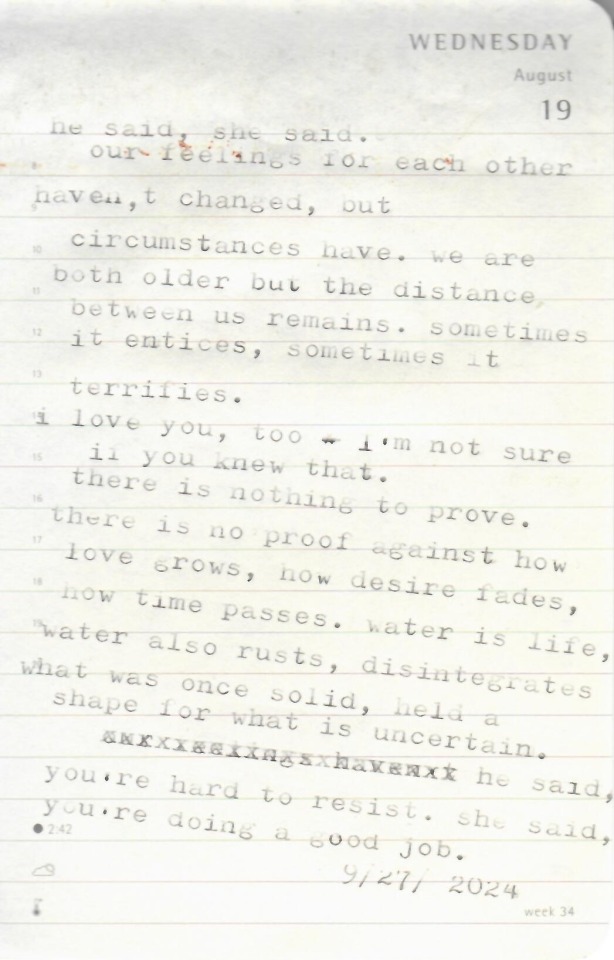 WEDNESDAY
August
19
he said, she said.
our feelings for each other
haven,t changed, but
10
circumstances have. we are
both older but the distance
11
between us remains. sometimes
12
it entices, sometimes it
13
terrifies.
i love you, too - I'm not sure
15
if you knew that.
there is nothing to prove.
16
there is no proof against how
17
love grows, how desire fades,
18
how time passes. water is life,
19
water also rusts, disintegrates
what was once solid, held a
shape for what is uncertain.
he said,
you're hard to resist. she said,
you're doing a good job.
2:42
9/27/ 2024
week 34